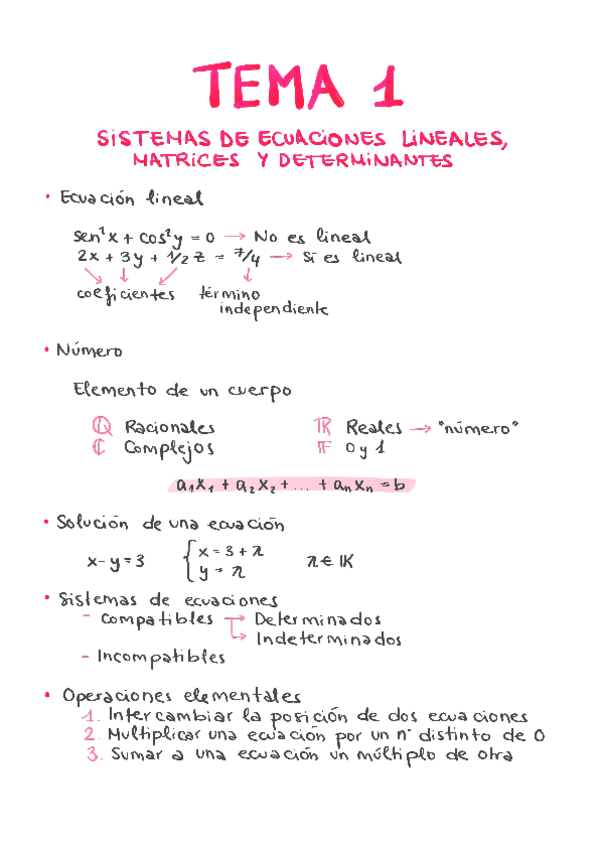 TEMA 1
SISTEMAS DE ECUACIONES LINEALES,
MATRICES Y DETERMINANTES
• Ecuación lineal
sen²x + cos²y = 0 → No es lineal
2x + 3y + 1/2 z = 7/4 → Sí es lineal
coeficientes término
independiente
• Número
Elemento de un cuerpo
ℚ Racionales ℝ Reales → "número"
ℂ Complejos 𝔽 0 y 1
a₁x₁ + a₂x₂ + ... + aₙxₙ = b
• Solución de una ecuación
x - y = 3 { x = 3 + λ
y = λ λ ∈ 𝕂
• Sistemas de ecuaciones
- Compatibles → Determinados
→ Indeterminados
- Incompatibles
• Operaciones elementales
1. Intercambiar la posición de dos ecuaciones
2. Multiplicar una ecuación por un nº distinto de 0
3. Sumar a una ecuación un múltiplo de otra